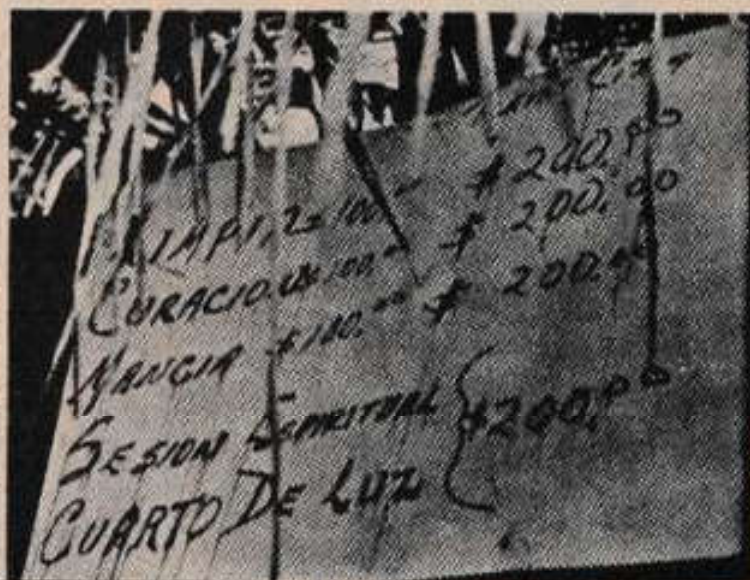 LIMPIA $100.00 $200.00
CURACION $100.00 $200.00
MANCIA $100.00 $200.00
SESION ESPIRITUAL } $200.00
CUARTO DE LUZ